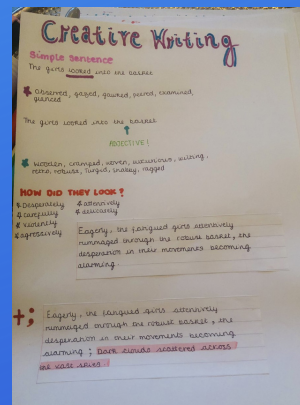 Creative Writing
Simple sentence
The girls looked into the basket
Observed, gazed, gawked, peered, examined,
glanced
The girls looked into the basket
ADJECTIVE!
wooden, cramped, woven, luxurious, wilting,
retro, robust, Turgid, shabby, ragged
HOW DID THEY LOOK?
Desperately
attentively
carefully
delicately
violently
agressively
Eagerly, the fatigued girls attentively
rummaged through the robust basket, the
desperation in their movements becoming
alarming
+;
Eagerly, the fatigued girls attentively
rummaged through the robust basket, the
desperation in their movements becoming
alarming; Dark clouds scattered across
the vast skies